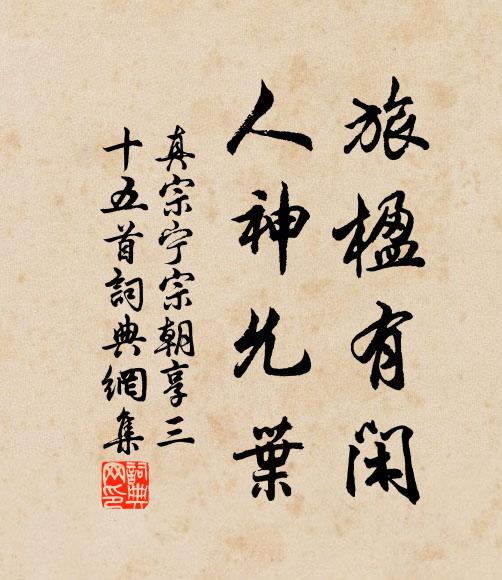 旅楹有闲
人神允葉
真宗宁宗朝享三
十五首詞典網集
詞典网印